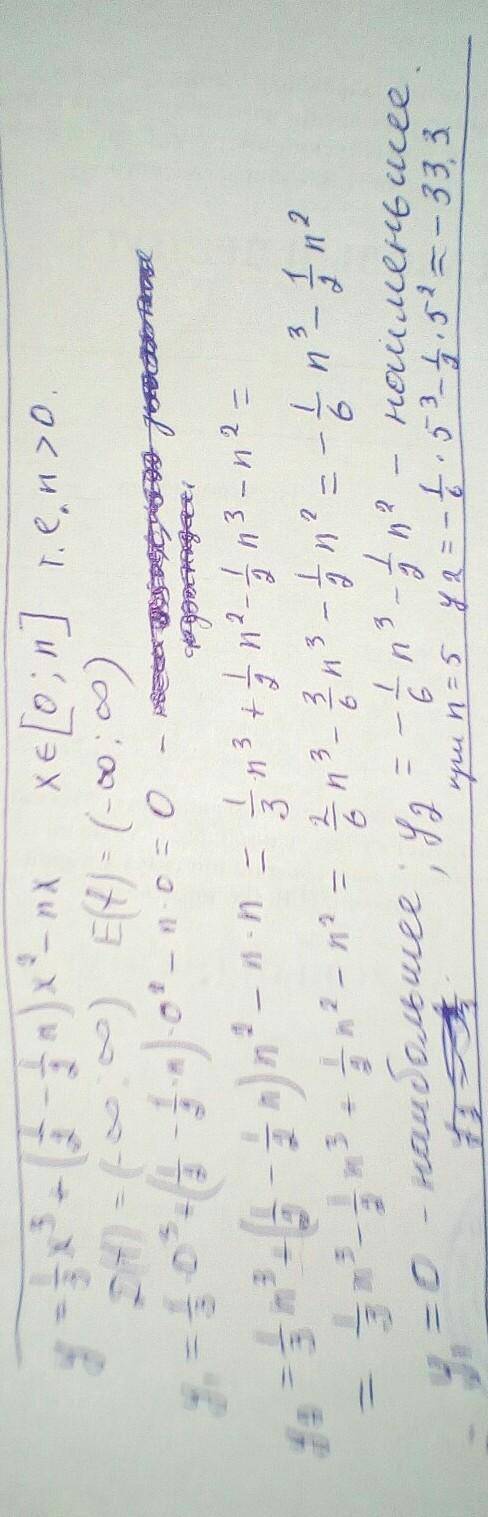 y = 1/3 x³ + (1/2 - 1/2 n) x² - nx   x ∈ [0; n]   т.е. n > 0.
D(f) = (-∞; ∞)   E(f) = (-∞; ∞)
y₁ = 1/3 · 0³ + (1/2 - 1/2 · n) · 0² - n · 0 = 0 -
y₂ = 1/3 n³ + (1/2 - 1/2 n) n² - n · n = 1/3 n³ + 1/2 n² - 1/2 n³ - n² =
= 1/3 n³ - 1/2 n³ + 1/2 n² - n² = 2/6 n³ - 3/6 n³ - 1/2 n² = - 1/6 n³ - 1/2 n²
y₁ = 0 - наибольшее; y₂ = - 1/6 n³ - 1/2 n² - наименьшее.
при n = 5   y₂ = - 1/6 · 5³ - 1/2 · 5² = - 33,3